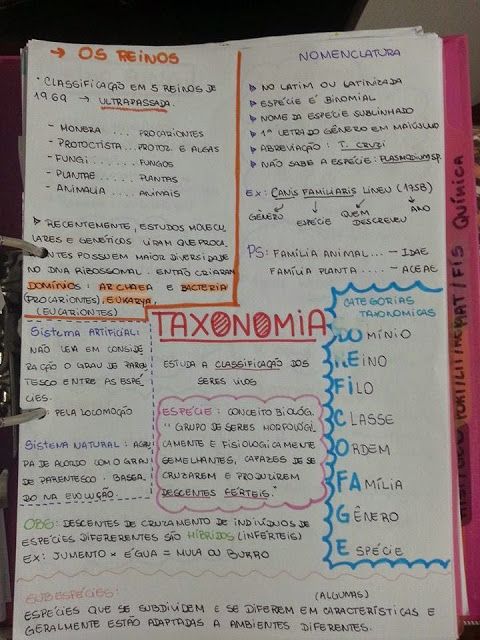 → OS REINOS
• CLASSIFICAÇÃO EM 5 REINOS DE
1969 → ULTRAPASSADA.
- MONERA .... PROCARIONTES
- PROTOCTISTA... PROTOZ. E ALGAS
- FUNGI ..... FUNGOS
- PLANTAE ..... PLANTAS
- ANIMALIA ... ANIMAIS
▷ RECENTEMENTE, ESTUDOS MOLECU
LARES E GENÉTICOS VIRAM QUE PROCA
NTES POSSUEM MAIOR DIVERSIDADE
NO DNA RIBOSSOMAL. ENTÃO CRIARAM
DOMÍNIOS: ARCHAEA E BACTERIA
(PROCARIONTES), EUKARYA,
(EUCARIONTES)
NOMENCLATURA
▷ NO LATIM OU LATINIZADA
▷ ESPÉCIE É BINOMIAL
▷ NOME DA ESPÉCIE SUBLINHADO
▷ 1ª LETRA DO GÊNERO EM MAIÚCULO
▷ ABREVIAÇÃO: T. CRUZI
▷ NÃO SABE A ESPÉCIE: PLASMODIUM SP.
EX: CANIS FAMILIARIS LINEU (1758)
GÊNERO ESPÉCIE QUEM DESCREVEU ANO
PS: FAMÍLIA ANIMAL... - IDAE
FAMÍLIA PLANTA .... - ACEAE
TAXONOMIA
ESTUDA A CLASSIFICAÇÃO DOS
SERES VIVOS
Sistema ARTIFICIAL:
NÃO LEVA EM CONSIDE
RAÇÃO O GRAU DE PAREN
TESCO ENTRE AS ESPÉ
CIES.
: PELA LOCOMOÇÃO
Sistema NATURAL: AGRU
PA DE ACORDO COM O GRAU
DE PARENTESCO. BASEA
DO NA EVOLUÇÃO.
ESPÉCIE: CONCEITO BIOLÓG.
"GRUPO DE SERES MORFOLÓGI
CAMENTE E FISIOLOGICAMENTE
SEMELHANTES, CAPAZES DE SE
CRUZAREM E PRODUZIREM
DESCENTES FÉRTEIS."
CATEGORIAS
TAXONOMICAS
DOMÍNIO
REINO
FILO
CLASSE
ORDEM
FAMÍLIA
GÊNERO
ESPÉCIE
OBS: DESCENTES DE CRUZAMENTO DE INDIVÍDUOS DE
ESPÉCIES DIFERERENTES SÃO HÍBRIDOS (INFÉRTEIS)
EX: JUMENTO × ÉGUA = MULA OU BURRO
SUBESPÉCIES: (ALGUMAS)
ESPÉCIES QUE SE SUBDIVIDEM E SE DIFEREM EM CARACTERÍSTICAS E
GERALMENTE ESTÃO ADAPTADAS A AMBIENTES DIFERENTES.
PORT/LIT/ MAT/FIS QUÍMICA